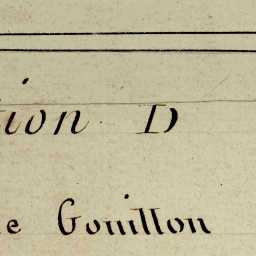 ion D
e Gouillon